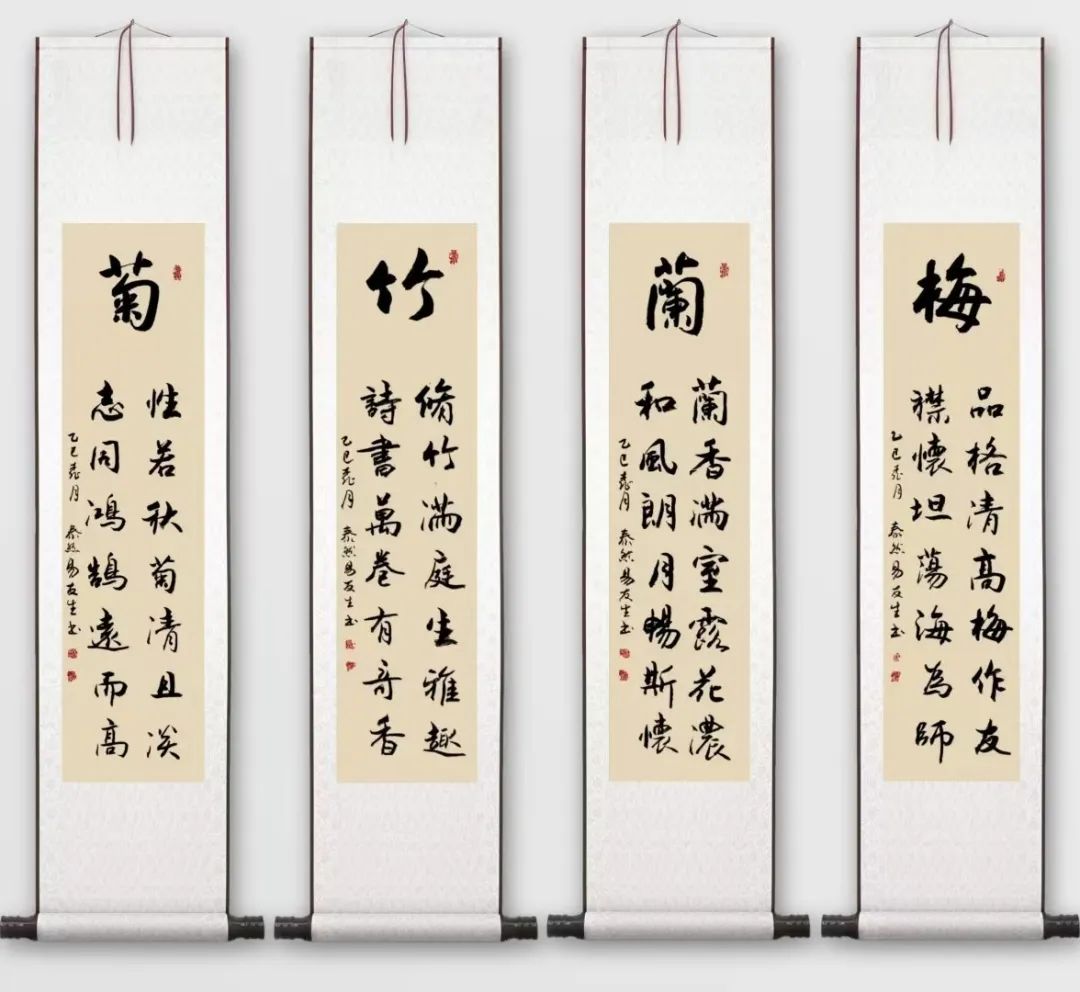 梅
品格清高梅作友
襟懷坦蕩海為師
乙巳 月 泰然易友生书
蘭
蘭香滿室露花濃
和風朗月暢斯懷
乙巳 月 泰然易友生书
竹
脩竹滿庭生雅趣
詩書萬卷有奇香
乙巳 月 泰然易友生书
菊
性若秋菊清且淡
志同鴻鵠遠而高
乙巳 月 泰然易友生书